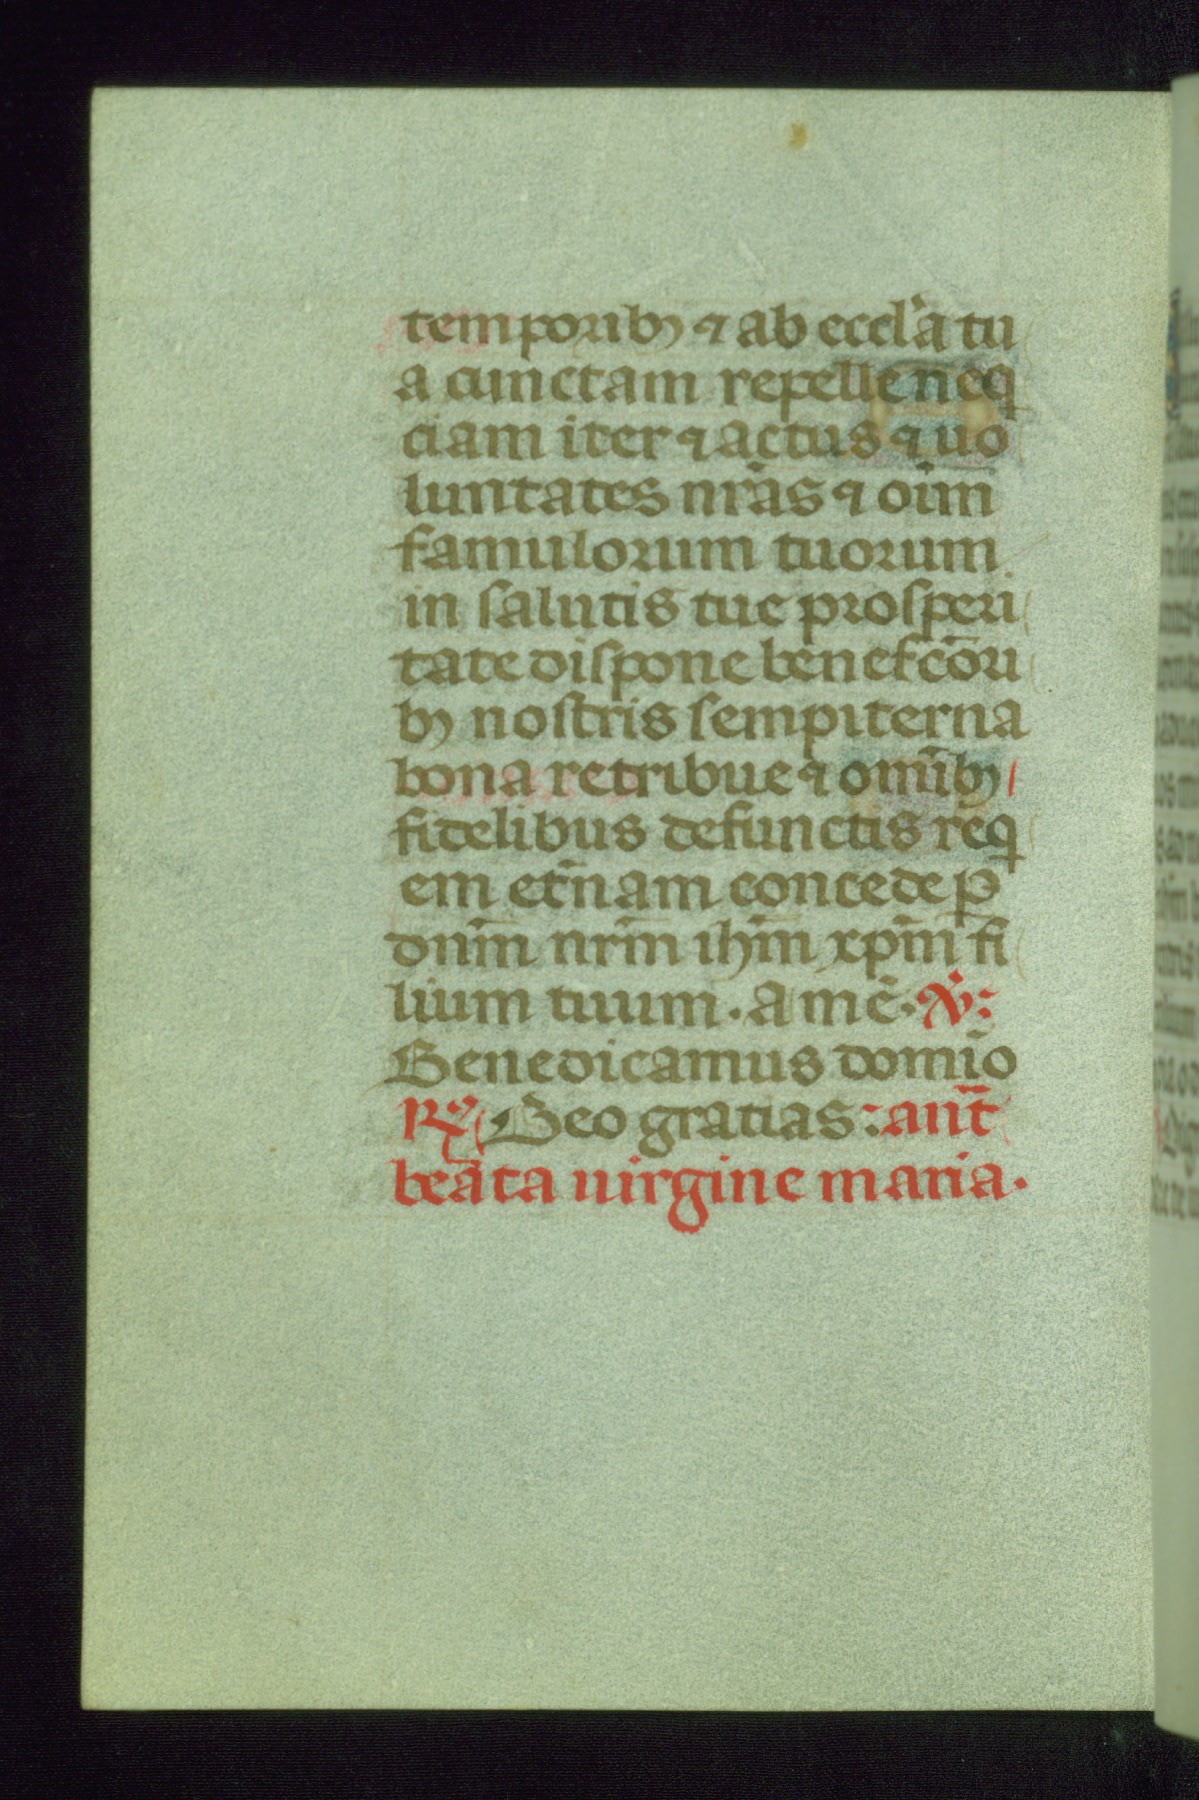 temporibꝫ ⁊ ab eccl'a tu
a cunctam repelle neq
ciam iter ⁊ actus ⁊ uo
luntates nr̄as ⁊ oīm
famulorum tuorum
in salutis tue prosperi
tate dispone benefc̄ori
bꝫ nostris sempiterna
bona retribue ⁊ omībꝫ
fidelibus defunctis req
em et̄nam concede p̄
dnm̄ nrm̄ ihm̄ xpm̄ fi
lium tuum. amē. ℣:
Benedicamus domīo
℞ Deo gratias: ant̄
beāta uirgine maria.